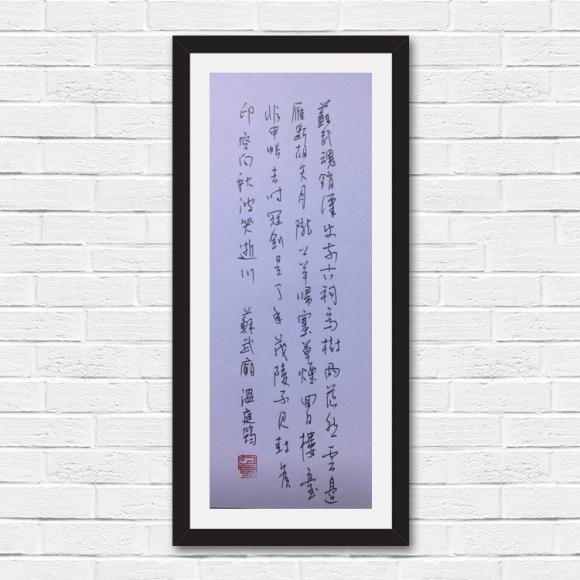 蘇武魂銷漢使前古祠高樹兩茫然雲邊
雁斷胡天月隴上羊歸塞草煙回日樓臺
非甲帳去時冠劍是丁年茂陵不見封侯
印空向秋波哭逝川 蘇武廟 溫庭筠